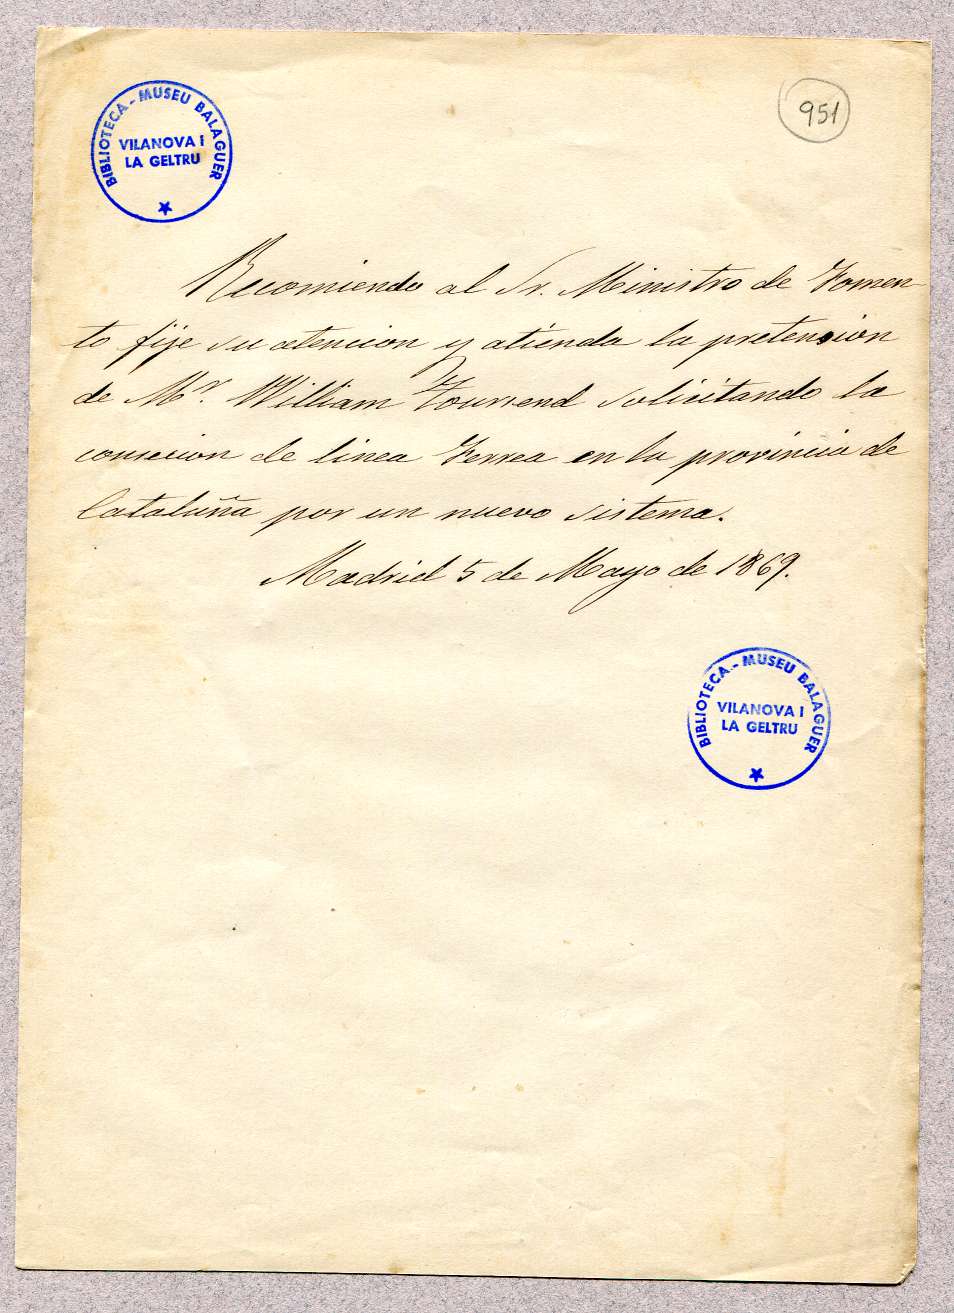 BIBLIOTECA - MUSEU BALAGUER
VILANOVA i
LA GELTRU
951
Recomiendo al Sr. Ministro de Fomen-
to fije su atencion y atienda la pretension
de Mr. William Tousend solicitando la
consecion de linea Ferrea en la provincia de
Cataluña por un nuevo sistema.
Madrid 5 de Mayo de 1869.
BIBLIOTECA - MUSEU BALAGUER
VILANOVA i
LA GELTRU